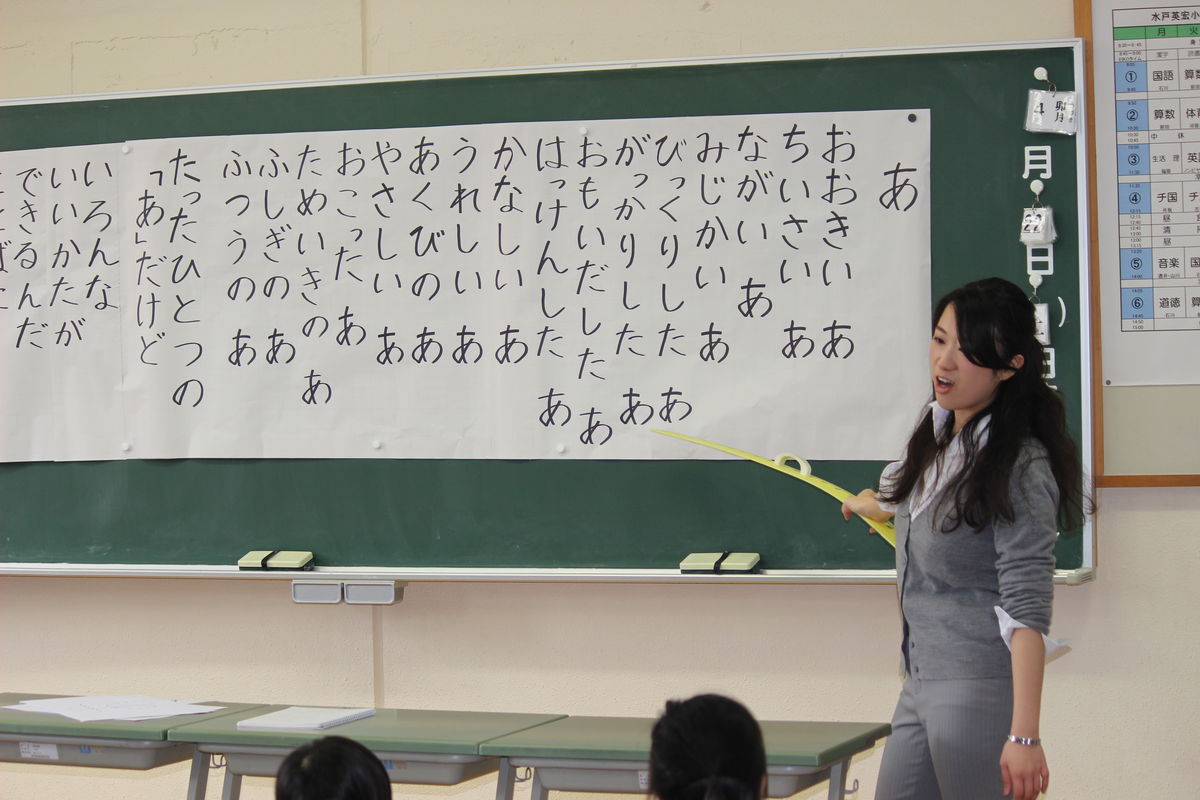 あ
おおきい あ
ちいさい あ
ながい あ
みじかい あ
びっくりした あ
がっかりした あ
おもいだした あ
はっけんした あ
かなしい あ
うれしい あ
あくびの あ
やさしい あ
おこった あ
ためいきの あ
ふしぎの あ
ふつうの あ
たったひとつの
「あ」だけど
いろんな
いいかたが
できるんだ
4 卯月
月
22
日
水戸英宏小
月 火
① 国語 算数
② 算数 体育
中 休
③ 生活 理
④ チ国 チ
昼
清
昼
⑤ 音楽 国
⑥ 道徳 算